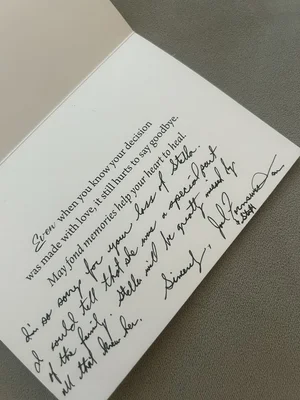 Even when you know your decision
was made with love, it still hurts to say goodbye.
May fond memories help your heart to heal.
I'm so sorry for your loss of Stella.
I could tell that she was a special part
of the family. Stella will be greatly missed by
all that knew her.
Sincerely,
& Staff